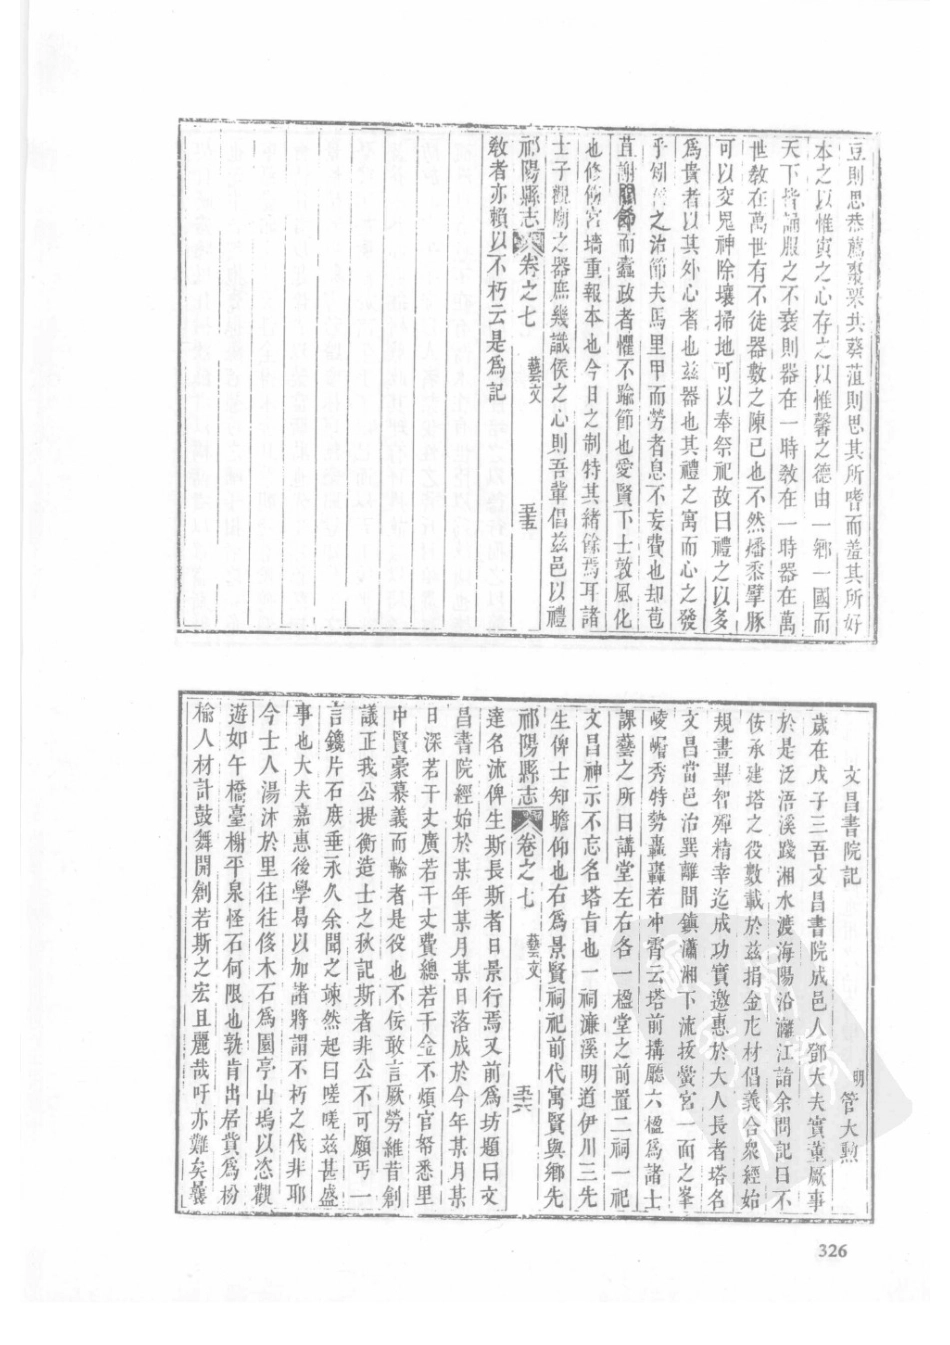 豆則思恭薦棗栗共葵菹則思其所嗜而羞其所好
本之以惟寅之心存之以惟馨之德由一鄉一國而
天下皆誦服之不衰則器在一時教在一時器在萬
世教在萬世有不徒器數之陳已也不然燔黍擘豚
可以交鬼神除壤掃地可以奉祭祀故曰禮之以多
為貴者以其外心者也茲器也其禮之寓而心之發
乎 之治節夫馬里甲而勞者息不妄費也却苞
苴謝 而蠹政者懼不踰節也愛賢下士敦風化
也修飭宮墻重報本也今日之制特其緒餘焉耳諸
士子觀廟之器庶幾識侯之心則吾輩倡茲邑以禮
祁陽縣志 卷之七 藝文 五十五
教者亦賴以不朽云是為記
文昌書院記 明 管大勲
歲在戊子三吾文昌書院成邑人鄧大夫實董厥事
於是泛浯溪踐湘水渡海陽沿灕江詣余問記曰不
佞承建塔之役數載於茲捐金庀材倡義合衆經始
規畫畢智殫精幸迄成功實邀惠於大人長者塔名
文昌當邑治巽離間鎮瀟湘下流拔黌宮一面之峯
崚嶒秀特勢轟轟若冲霄云塔前搆廳六楹為諸士
課藝之所曰講堂左右各一楹堂之前置二祠一祀
文昌神示不忘名塔旨也一祠濂溪明道伊川三先
生俾士知瞻仰也右為景賢祠祀前代寓賢與鄉先
達名流俾生斯長斯者日景行焉又前為坊題曰文
祁陽縣志 卷之七 藝文 五十六
昌書院經始於某年某月某日落成於今年某月某
日深若干丈廣若干丈費總若干金不煩官帑悉里
中賢豪慕義而輸者是役也不佞敢言厥勞維昔創
議正我公提衡造士之秋記斯者非公不可願丐一
言鑱片石庶垂永久余聞之竦然起曰嗟嗟茲甚盛
事也大夫嘉惠後學曷以加諸將謂不朽之伐非耶
今士人湯沐於里往往侈木石為園亭山塢以恣觀
遊如午橋臺榭平泉怪石何限也孰肯出居貲為枌
榆人材計鼓舞開創若斯之宏且麗哉吁亦難矣曩
326